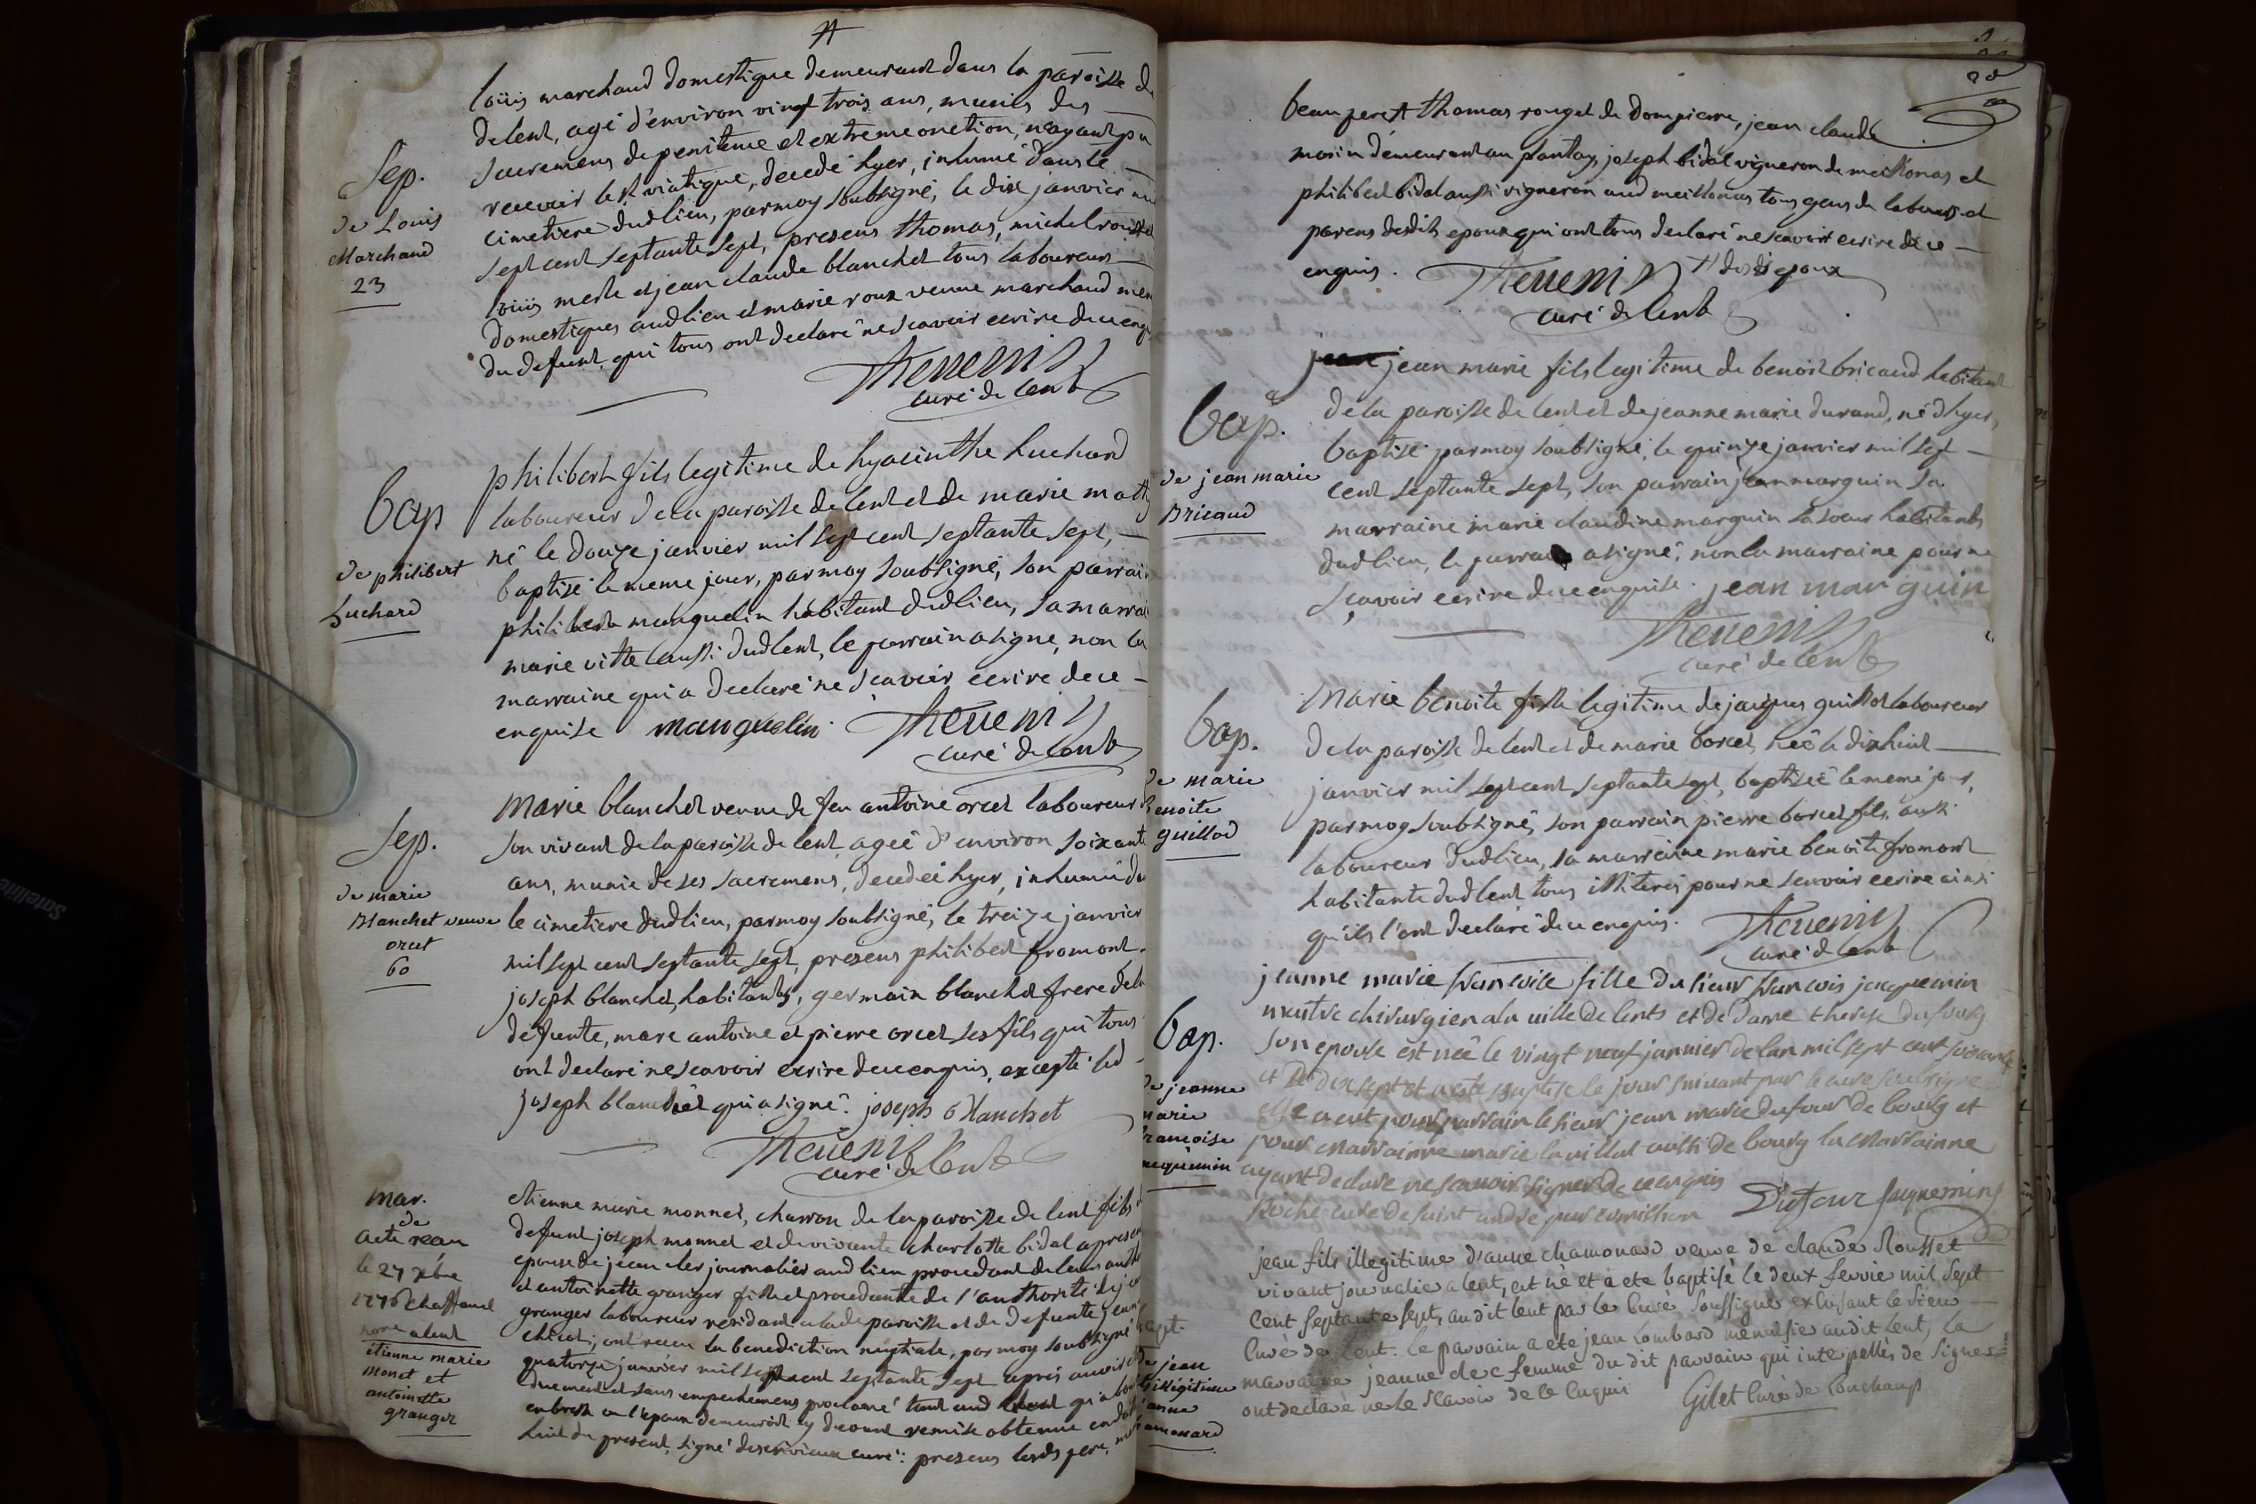 louis marchand domestique demeurant dans la paroisse de
delent, agé d'environ vingt trois ans, munis des
sacremens de penitence et extreme onction, n'ayant pu
recevoir le st viatique, decedé hyer, inhumé dans le
cimetiere dudlieu, par moy soubsigné, le dix janvier mil
sept cent septante sept, presens thomas, michel rousset
louis mesle et jean claude blanchet tous laboureurs
domestiques audlieu et marie roux veuve marchand mere
du defunt, qui tous ont declaré ne scavoir ecrire de ce enquis
Thevenin
curé de lent
Sep.
de Louis
Marchand
23
philibert fils legitime de hyacinthe luchard
laboureur de la paroisse de lent et de marie
né le douze janvier mil sept cent septante sept,
baptisé le meme jour, par moy soubsigné, son parrain
philibert manguelin habitant dudlieu, sa marraine
marie vitte aussi dudlent, le parrain a signé, non la
marraine qui a declaré ne scavoir ecrire de ce
enquise manguelin Thevenin
curé de lent
bap
de philibert
Luchard
Marie blanchet veuve de feu antoine orcet laboureur
son vivant de la paroisse de lent, ageé d'environ soixante
ans, munie de ses sacremens, decedeé hyer, inhumeé dans
le cimetiere dudlieu, par moy soubsigné, le treize janvier
mil sept cent septante sept, presens philibert fromont
joseph blanchet, habitants, germain blanchet frere de la
defunte, marc antoine et pierre orcet ses fils qui tous
ont declaré ne scavoir ecrire de ce enquis, excepté led
joseph blanchet qui a signé. joseph blanchet
Thevenin
curé de lent
Sep.
de marie
Blanchet veuve
orcet
60
etienne marie monnet, charron de la paroisse de lent fils
defunt joseph monnet et de vivante charlotte bidal a present
epouse de jean cler journalier aud lieu procedant de leurs
et antoinette granger fille et procedante de l'authorité de
granger laboureur residant a lade paroisse et de defunte
chicot; ont recu la benediction nuptiale, par moy soubsigné
quatorze janvier mil sept cent septante sept aprés avoir
duement et sans empechemens proclamé tant aud lent
en bresse ou l'epoux demeuroit
huit du present, signé curé: presens
mar.
de
acte reçu
le 27 xbre
1776
a lent
etienne marie
Monet et
antoinette
granger
beaupere thomas rouget de dompierre, jean claude
morin demeurant au plantay, joseph bidal vigneron de meillonas et
philibert bidal aussi vigneron aud meillonas tous gens de labeur et
parens desdits epoux qui ont tous declaré ne scavoir ecrire de ce
enquis. Thevenin desds epoux
curé de lent
jean marie fils legitime de benoit bricaud habitant
de la paroisse de lent et de jeanne marie durand, né d'hyer,
baptisé par moy soubsigné, le quinze janvier mil sept
cent septante sept, son parrain jean marguin sa
marraine marie claudine marguin sa soeur habitants
dudlieu, le parrain a signé, non la marraine pour ne
scavoir ecrire de ce enquise. jean marguin
Thevenin
curé de lent
bap.
de jean marie
Bricaud
Marie benoite fille legitime de jacques guillot laboureur
de la paroisse de lent et de marie borcet, neé le dixhuit
janvier mil sept cent septante sept, baptiseé le meme jour,
par moy soubsigné, son parrain pierre borcet fils, aussi
laboureur dudlieu, sa marraine marie benoite fromont
habitante dudlent tous illiterés pour ne scavoir ecrire ainsi
qu'ils l'ont declaré de ce enquis. Thevenin
curé de lent
bap.
de marie
Benoite
guillod
jeanne marie francoise fille du sieur francois jacquemin
maitre chirurgien a la ville de lents et de dame therese dufourg
son epouse est neé le vingt neuf janvier de lan mil sept cent soixante
et dix sept et a esté baptisé le jour suivant par le curé soussigné
elle a eut pour parrain le sieur jean marie dufour de bourg et
pour marrainne marie lavillat aussi de bourg la marrainne
ayant declaré ne scavoir signer de ce enquis
Roche curé de saint andré par comission Dufour Jacquemin
bap.
de jeanne
marie
francoise
jacquemin
jean fils illegitime d'anne chamonard veuve de claude Rousset
vivant journalier a lent, est né et a eté baptisé le deux fevrier mil sept
cent septante sept, audit lent par le curé soussigné excusant le sieur
curé de lent. le parrain a eté jean lombard menuisier audit lent, la
marraine jeanne clerc femme du dit parrain qui interpellés de signer
ont declaré ne le scavoir de ce enquis Gilet curé de
bapt.
de jean
illégitime
d'anne
chamonard